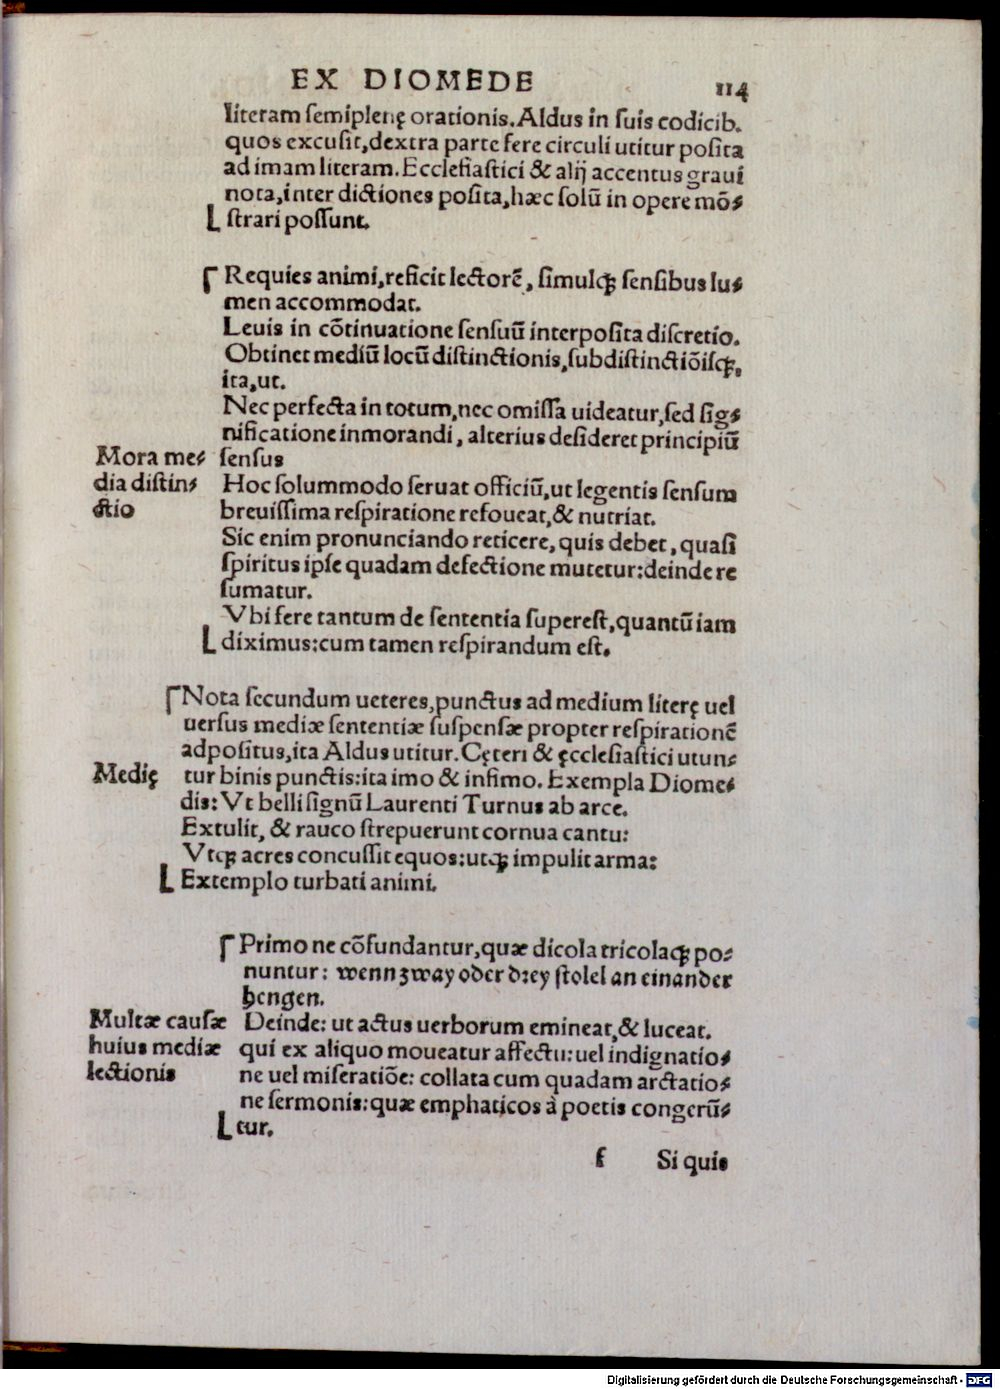 EX DIOMEDE 114
literam ſemiplenę orationis. Aldus in ſuis codicib.
quos excuſit, dextra parte fere circuli utitur poſita
ad imam literam. Eccleſiaſtici & alij accentus graui
nota, inter dictiones poſita, hæc ſolū in opere mō⸗
ſtrari poſſunt.
Requies animi, reficit lectorē, ſimulqꝫ ſenſibus lu⸗
men accommodat.
Leuis in cōtinuatione ſenſuū interpoſita diſcretio.
Obtinet mediū locū diſtinctionis, ſubdiſtinctiōiſqꝫ,
ita, ut.
Nec perfecta in totum, nec omiſſa uideatur, ſed ſig⸗
nificatione inmorandi, alterius deſideret principiū
ſenſus
Mora me⸗
dia diſtin⸗
ctio
Hoc ſolummodo ſeruat officiū, ut legentis ſenſum
breuiſſima reſpiratione refoueat, & nutriat.
Sic enim pronunciando reticere, quis debet, quaſi
ſpiritus ipſe quadam defectione mutetur: deinde re
ſumatur.
Vbi fere tantum de ſententia ſupereſt, quantū iam
diximus: cum tamen reſpirandum eſt.
Nota ſecundum ueteres, punctus ad medium literę uel
uerſus mediæ ſententiæ ſuſpenſæ propter reſpirationē
adpoſitus, ita Aldus utitur. Cęteri & ęccleſiaſtici utun⸗
Medię
tur binis punctis: ita imo & infimo. Exempla Diome⸗
dis: Vt belli ſignū Laurenti Turnus ab arce.
Extulit, & rauco ſtrepuerunt cornua cantu:
Vtqꝫ acres concuſſit equos: utqꝫ impulit arma:
Extemplo turbati animi.
Primo ne cōfundantur, quæ dicola tricolaqꝫ po⸗
nuntur: wenn zway oder drey ſtolel an einander
hengen.
Multæ cauſæ
huius mediæ
lectionis
Deinde: ut actus uerborum emineat, & luceat.
qui ex aliquo moueatur affectu: uel indignatio⸗
ne uel miſeratiōe: collata cum quadam arctatio⸗
ne ſermonis: quæ emphaticos à poetis congerū⸗
tur.
f Si quis
Digitalisierung gefördert durch die Deutsche Forschungsgemeinschaft - DFG